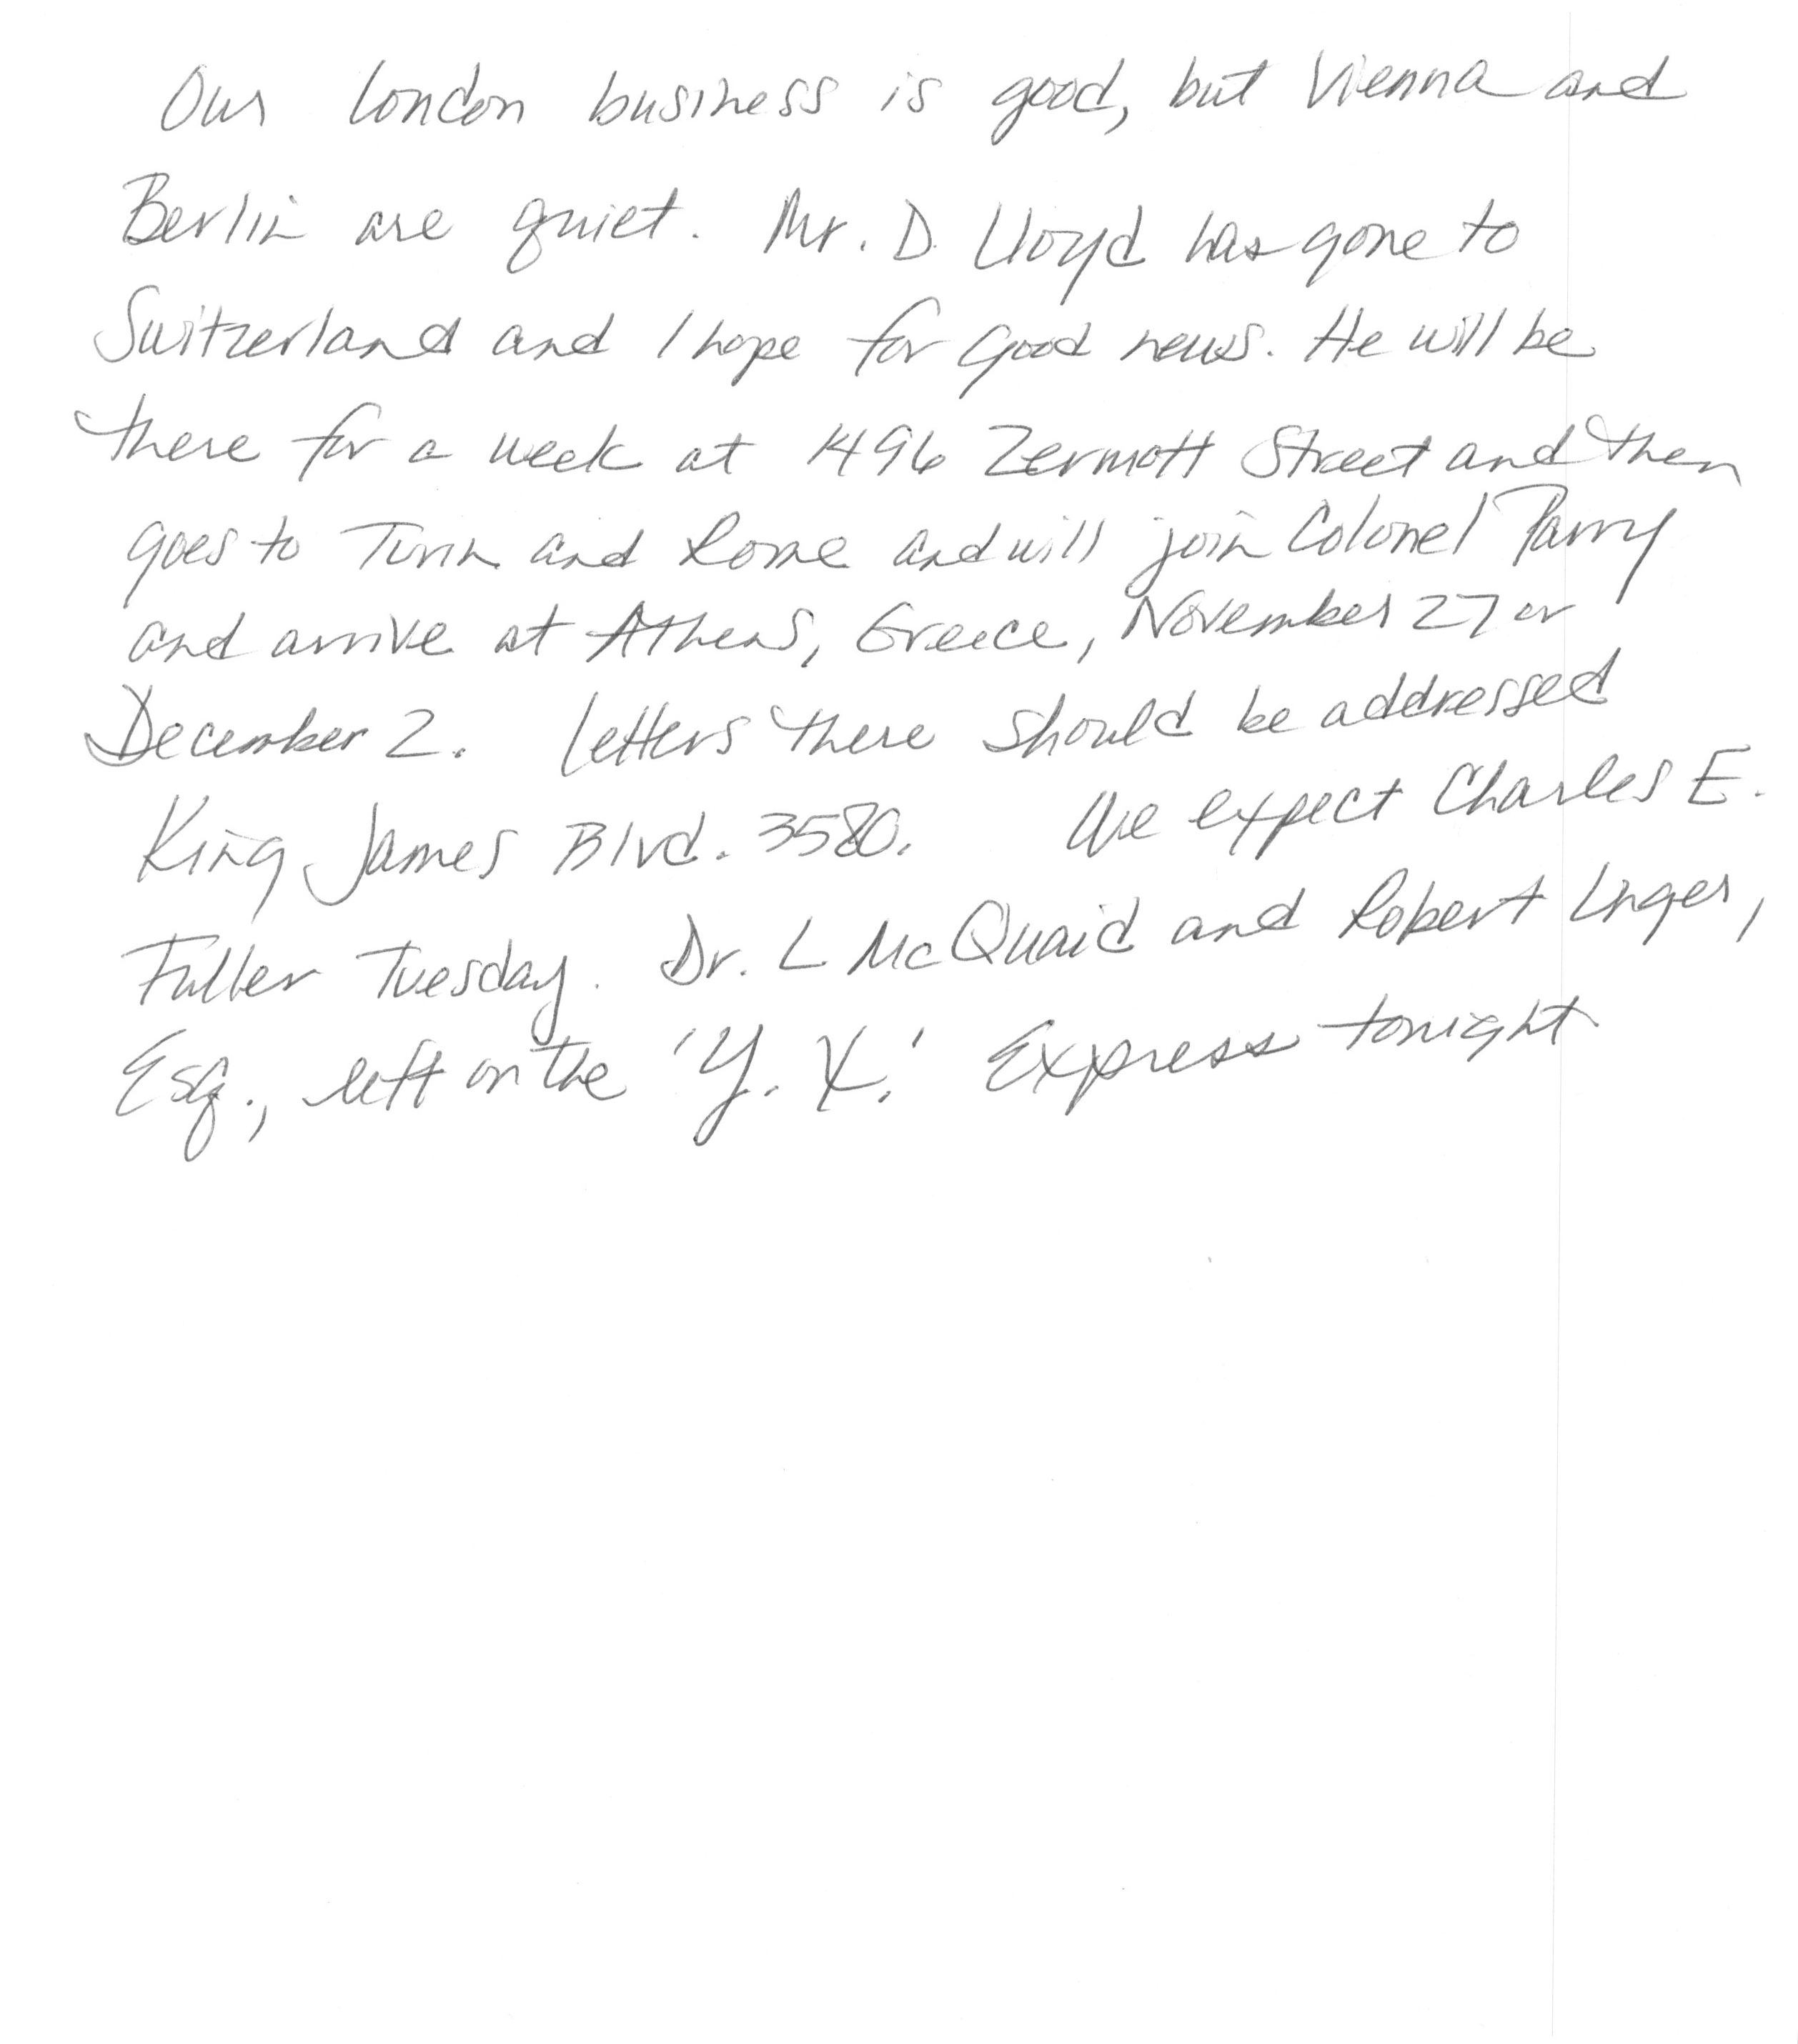 Our London business is good, but Vienna and
Berlin are quiet. Mr. D. Lloyd has gone to
Switzerland and I hope for good news. He will be
there for a week at 1496 Zermott Street and then
goes to Turin and Rome and will join Colonel Parry
and arrive at Athens, Greece, November 27 or
December 2. Letters there should be addressed
King James Blvd. 3580. We expect Charles E.
Fuller Tuesday. Dr. L McQuaid and Robert Unger,
Esq., left on the 'Y. X.' Express tonight.